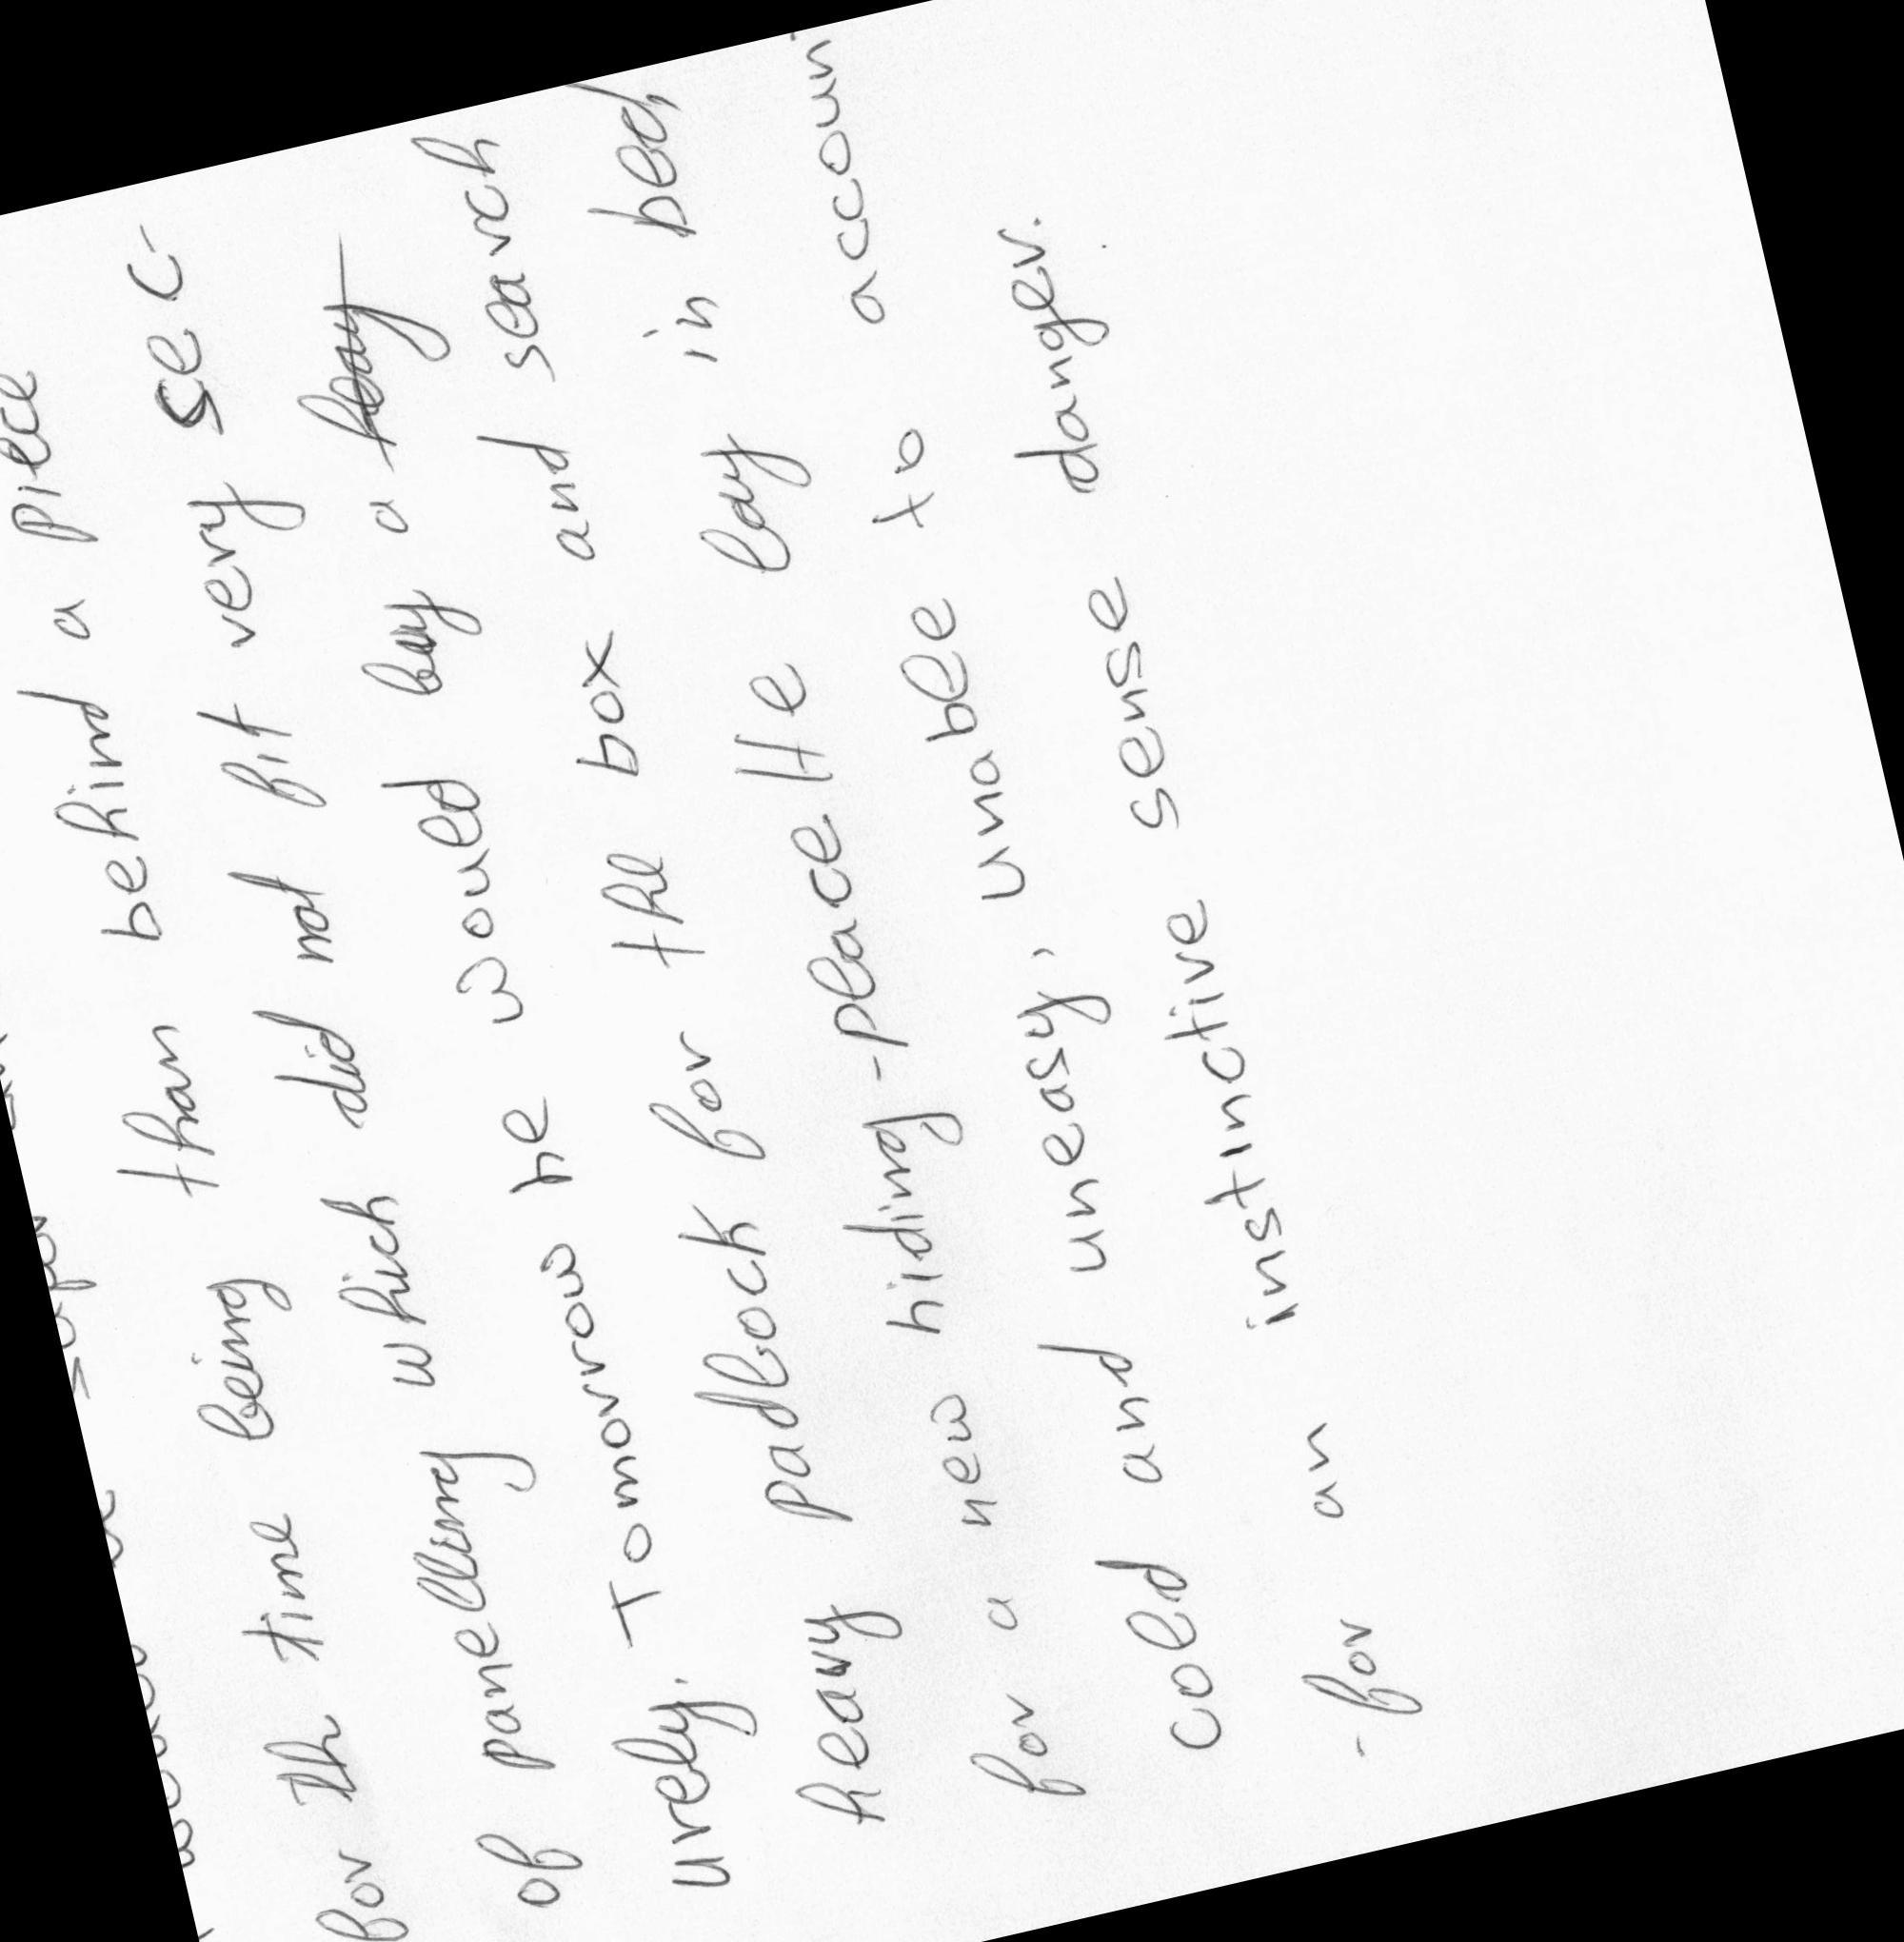 for the time being than behind a piece
of panelling which did not fit very sec-
urely. Tomorrow he would buy a heavy
heavy padlock for the box and search
for a new hiding-place He lay in bed,
cold and uneasy, unable to accoun
-for an instinctive sense danger.